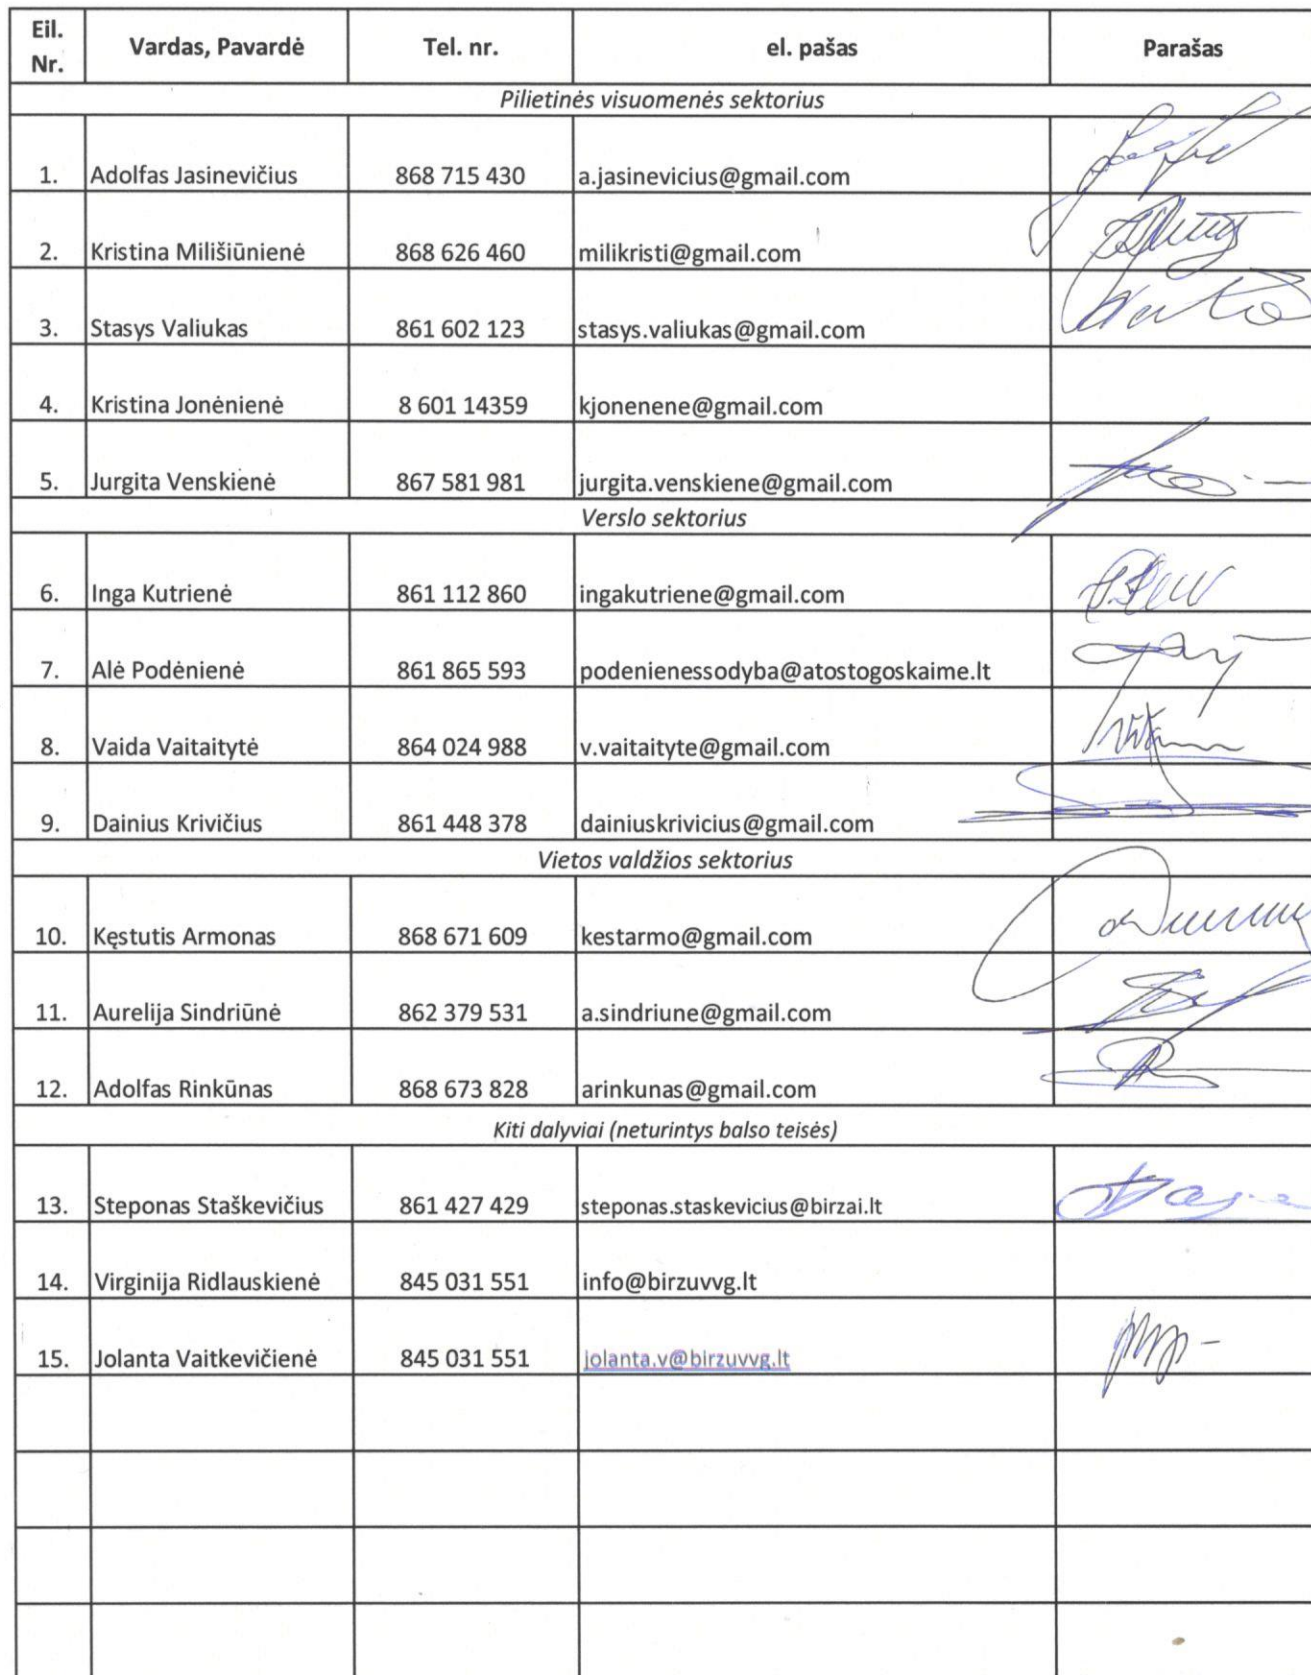 Eil. Nr. Vardas, Pavardė Tel. nr. el. pašas Parašas
Pilietinės visuomenės sektorius
1. Adolfas Jasinevičius 868 715 430 a.jasinevicius@gmail.com
2. Kristina Milišiūnienė 868 626 460 milikristi@gmail.com
3. Stasys Valiukas 861 602 123 stasys.valiukas@gmail.com
4. Kristina Jonėnienė 8 601 14359 kjonenene@gmail.com
5. Jurgita Venskienė 867 581 981 jurgita.venskiene@gmail.com
Verslo sektorius
6. Inga Kutrienė 861 112 860 ingakutriene@gmail.com
7. Alė Podėnienė 861 865 593 podenienessodyba@atostogoskaime.lt
8. Vaida Vaitaitytė 864 024 988 v.vaitaityte@gmail.com
9. Dainius Krivičius 861 448 378 dainiuskrivicius@gmail.com
Vietos valdžios sektorius
10. Kęstutis Armonas 868 671 609 kestarmo@gmail.com
11. Aurelija Sindriūnė 862 379 531 a.sindriune@gmail.com
12. Adolfas Rinkūnas 868 673 828 arinkunas@gmail.com
Kiti dalyviai (neturintys balso teisės)
13. Steponas Staškevičius 861 427 429 steponas.staskevicius@birzai.lt
14. Virginija Ridlauskienė 845 031 551 info@birzuvvg.lt
15. Jolanta Vaitkevičienė 845 031 551 jolanta.v@birzuvvg.lt